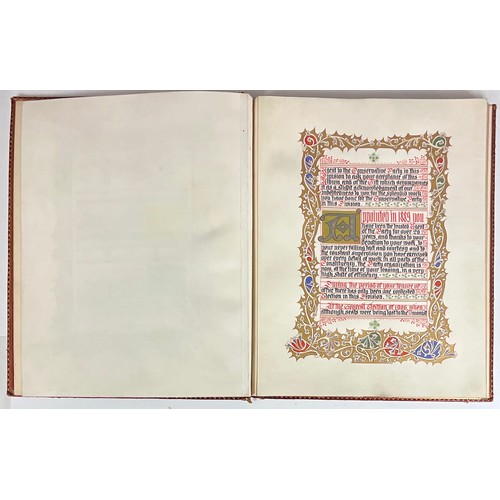 Agent to the Conservative Party in this
Division to ask your acceptance of this
Album and of the Gift which accompanies
it as a slight acknowledgement of our
indebtedness to you for the splendid work
you have done for the Conservative Party
in this Division.
Appointed in 1889 you
have been the trusted Agent
of the Party for over 20
years, and thanks to your
devotion to your work, to
your never failing tact and courtesy and to
the constant supervision you have exercised
over every detail of work in all parts of the
Constituency, the Party organization is
now, at the time of your leaving, in a very
high state of efficiency.
During the period of your tenure of
office there has only been one contested
Election in this Division.
At the General Election of 1906, when
although seats were being lost to the Unionist